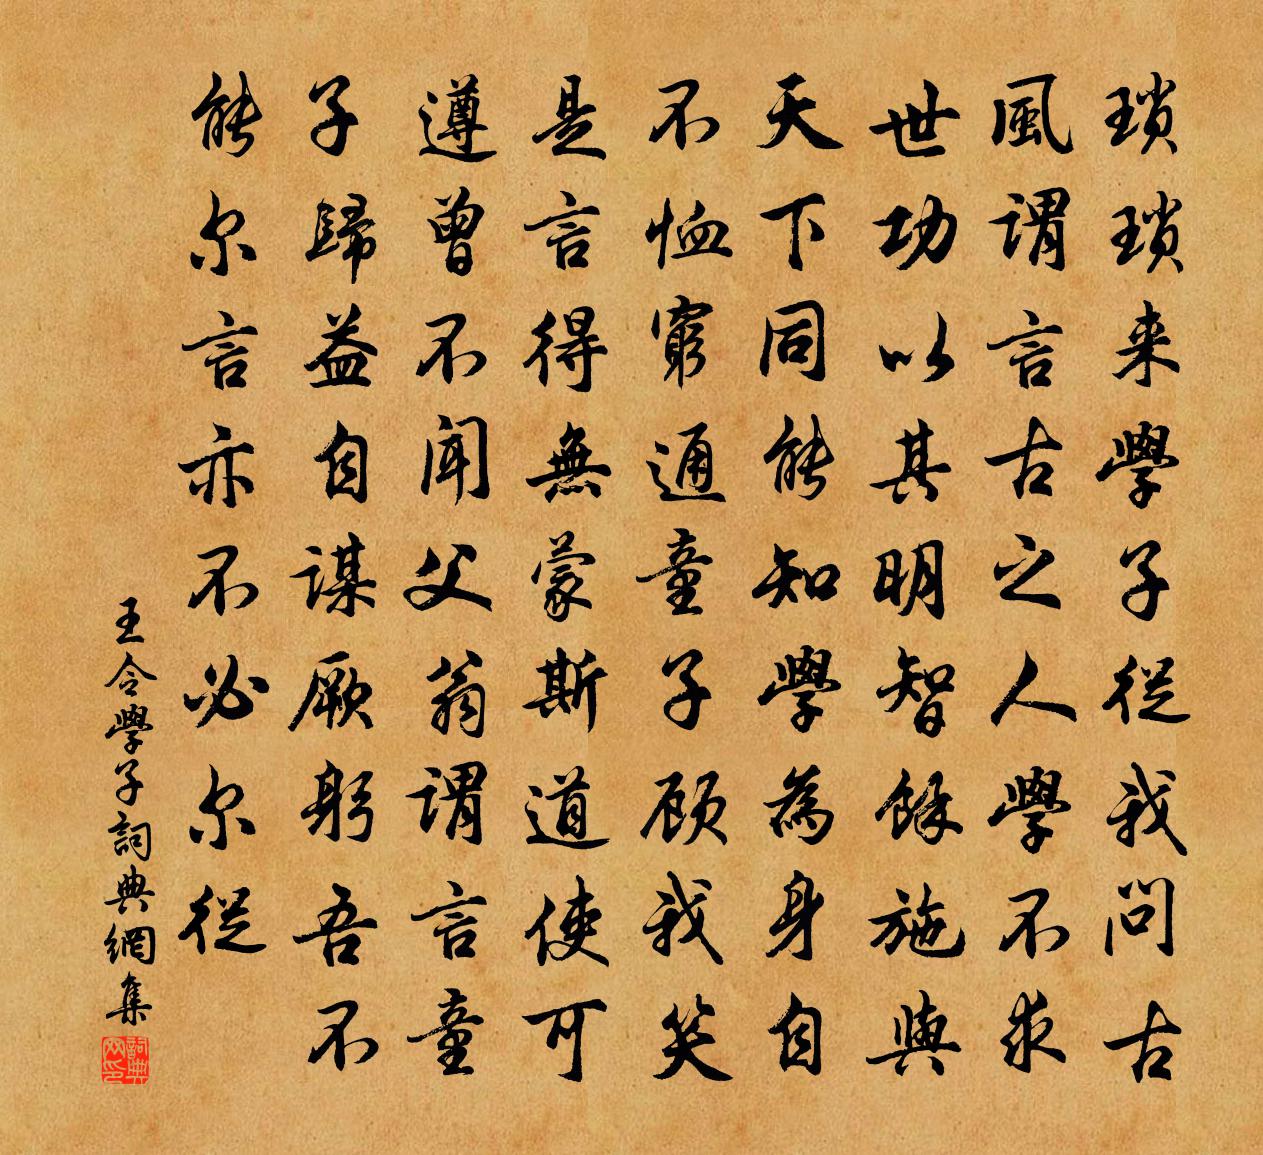 瑣瑣来學子從我問古
風謂言古之人學不求
世功以其明智餘施與
天下同能知學為身自
不恤窮通童子顧我笑
是言得無蒙斯道使可
遵曾不聞父翁謂言童
子歸益自謀厥躬吾不
能尔言亦不必尔從
王令學子詞典網集
詞典网印